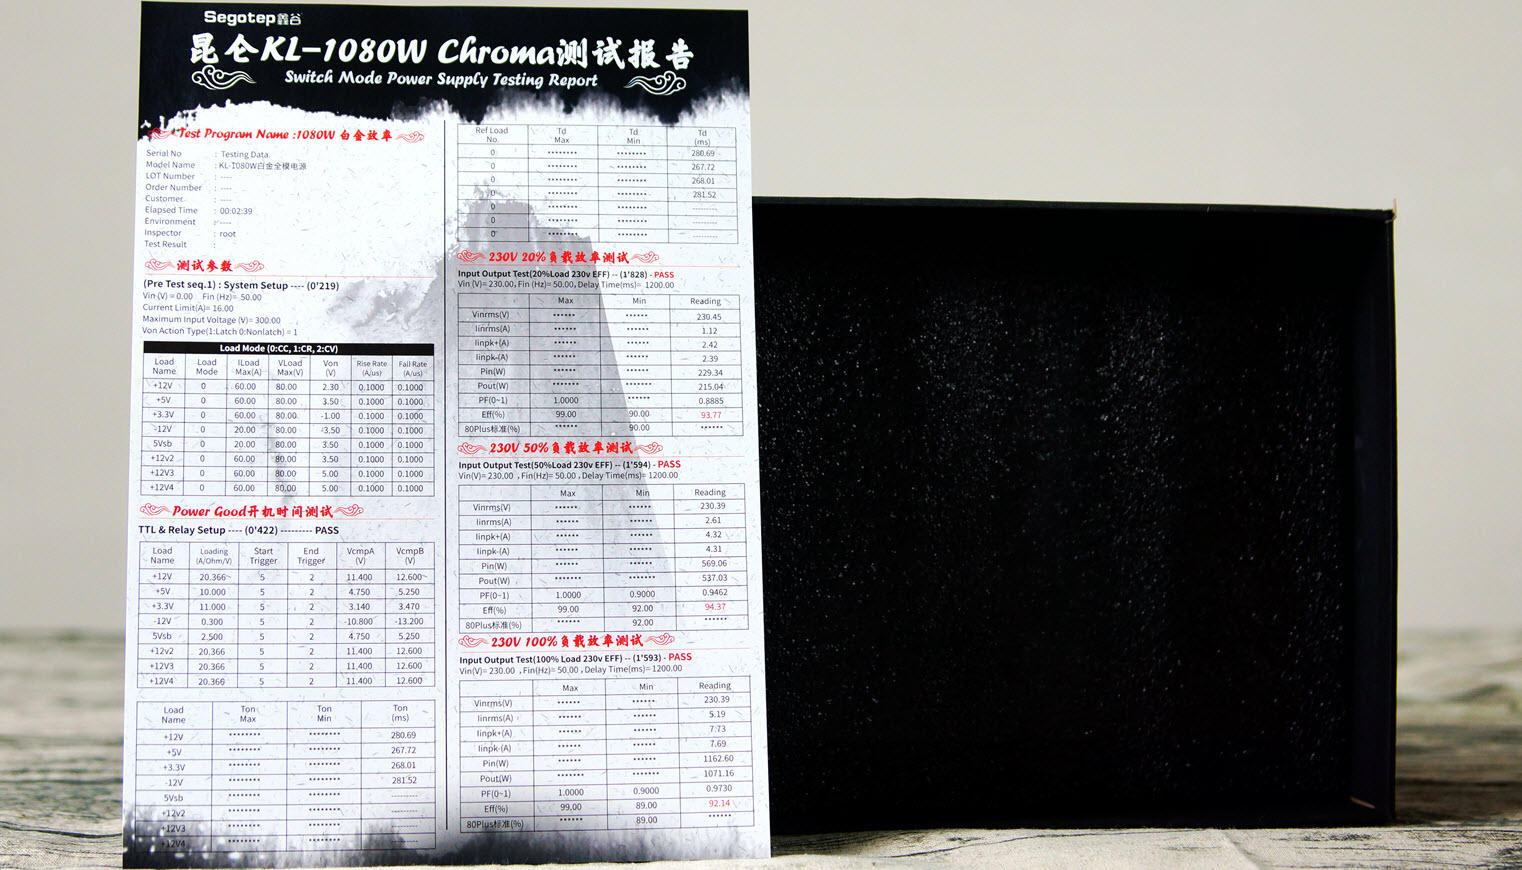 Segotep鑫谷
昆仑KL-1080W Chroma测试报告
Switch Mode Power Supply Testing Report
Test Program Name :1080W 白金效率
Serial No : Testing Data
Model Name : KL-1080W白金全模电源
LOT Number : ----
Order Number : ----
Customer : ----
Elapsed Time : 00:02:39
Environment : ----
Inspector : root
Test Result :
测试参数
(Pre Test seq.1) : System Setup ---- (0'219)
Vin (V) = 0.00 Fin (Hz)= 50.00
Current Limit(A)= 16.00
Maximum Input Voltage (V)= 300.00
Von Action Type(1:Latch 0:Nonlatch) = 1
Load Mode (0:CC, 1:CR, 2:CV)
Load Name Load Mode ILoad Max(A) VLoad Max(V) Von (V) Rise Rate (A/us) Fall Rate (A/us)
+12V 0 60.00 80.00 2.30 0.1000 0.1000
+5V 0 60.00 80.00 3.50 0.1000 0.1000
+3.3V 0 60.00 80.00 -1.00 0.1000 0.1000
-12V 0 20.00 80.00 -3.50 0.1000 0.1000
5Vsb 0 20.00 80.00 3.50 0.1000 0.1000
+12v2 0 60.00 80.00 3.50 0.1000 0.1000
+12V3 0 60.00 80.00 5.00 0.1000 0.1000
+12V4 0 60.00 80.00 5.00 0.1000 0.1000
Power Good开机时间测试
TTL & Relay Setup ---- (0'422) --------- PASS
Load Name Loading (A/Ohm/V) Start Trigger End Trigger VcmpA (V) VcmpB (V)
+12V 20.366 5 2 11.400 12.600
+5V 10.000 5 2 4.750 5.250
+3.3V 11.000 5 2 3.140 3.470
-12V 0.300 5 2 -10.800 -13.200
5Vsb 2.500 5 2 4.750 5.250
+12v2 20.366 5 2 11.400 12.600
+12V3 20.366 5 2 11.400 12.600
+12V4 20.366 5 2 11.400 12.600
Load Name Ton Max Ton Min Ton (ms)
+12V ******** ******** 280.69
+5V ******** ******** 267.72
+3.3V ******** ******** 268.01
-12V ******** ******** 281.52
5Vsb ******** ******** ----------
+12v2 ******** ******** ----------
+12V3 ******** ******** ----------
+12V4 ******** ******** ----------
Ref Load No. Td Max Td Min Td (ms)
0 ******** ******** 280.69
0 ******** ******** 267.72
0 ******** ******** 268.01
0 ******** ******** 281.52
0 ******** ******** ----------
0 ******** ******** ----------
0 ******** ******** ----------
230V 20%负载效率测试
Input Output Test(20%Load 230v EFF) -- (1'828) - PASS
Vin (V)= 230.00, Fin (Hz)= 50.00, Delay Time(ms)= 1200.00
Max Min Reading
Vinrms(V) ****** ****** 230.45
Iinrms(A) ****** ****** 1.12
Iinpk+(A) ****** ****** 2.42
Iinpk-(A) ****** ****** 2.39
Pin(W) ****** ****** 229.34
Pout(W) ******* ****** 215.04
PF(0~1) 1.0000 ****** 0.8885
Eff(%) 99.00 90.00 93.77
80Plus标准(%) ****** 90.00 ******
230V 50%负载效率测试
Input Output Test(50%Load 230v EFF) -- (1'594) - PASS
Vin(V)= 230.00 , Fin(Hz)= 50.00 , Delay Time(ms)= 1200.00
Max Min Reading
Vinrms(V) ****** ****** 230.39
Iinrms(A) ****** ****** 2.61
Iinpk+(A) ****** ****** 4.32
Iinpk-(A) ****** ****** 4.31
Pin(W) ****** ****** 569.06
Pout(W) ******* ******* 537.03
PF(0~1) 1.0000 0.9000 0.9462
Eff(%) 99.00 92.00 94.37
80Plus标准(%) ****** 92.00 ******
230V 100%负载效率测试
Input Output Test(100% Load 230v EFF) -- (1'593) - PASS
Vin(V)= 230.00 , Fin(Hz)= 50.00 , Delay Time(ms)= 1200.00
Max Min Reading
Vinrms(V) ****** ****** 230.39
Iinrms(A) ****** ****** 5.19
Iinpk+(A) ****** ****** 7.73
Iinpk-(A) ****** ****** 7.69
Pin(W) ****** ****** 1162.60
Pout(W) ******* ******* 1071.16
PF(0~1) 1.0000 0.9000 0.9730
Eff(%) 99.00 89.00 92.14
80Plus标准(%) ****** 89.00 ******